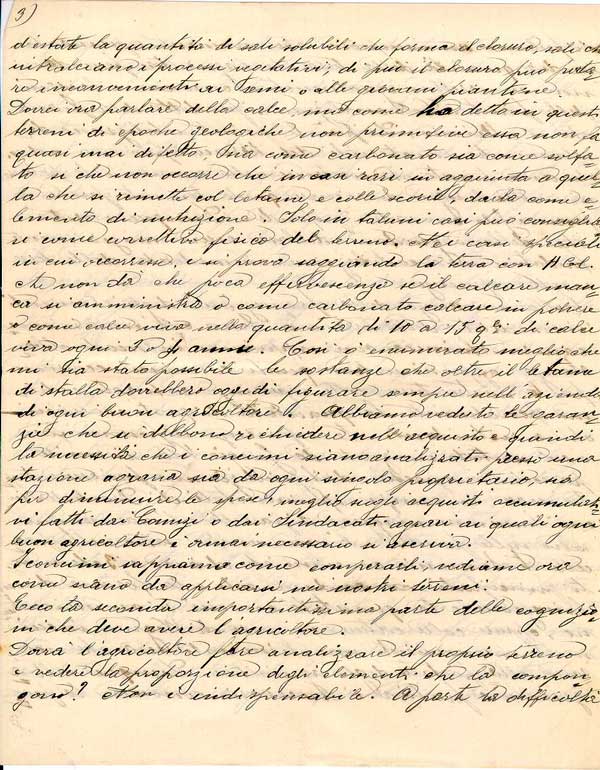 3)
d'estate la quantità di sali solubili che forma il cloruro, sali che
intralciano i processi vegetativi; di più il cloruro può porta-
re inconvenienti ai semi o alle giovani piantine.
Dovrei ora parlare della calce, ma come ho detto in questi
terreni di epoche geologiche non primitive essa non fa
quasi mai difetto sia come carbonato sia come solfa-
to si che non occorre che in casi rari in aggiunta a quel-
la che si rimette col letame e colle scorie, darla come e-
lemento di nutrizione. Solo in taluni casi può consigliar-
si come correttivo fisico del terreno. Nei casi speciali
in cui occorresse e si prova saggiando la terra con HCl.
che non dà che poca effervescenza se il calcare man-
ca si amministra o come carbonato calcare in polvere
o come calce viva nella quantità di 10 a 15 q.li di calce
viva ogni 3 o 4 anni. Così ò enumerato meglio che
mi sia stato possibile le sostanze che oltre il letame
di stalla dovrebbero oggidì figurare sempre nell'azienda
di ogni buon agricoltore. Abbiamo veduto le garan-
zie che si debbono richiedere nell'acquisto e quindi
la necessità che i concimi siano analizzati presso una
stazione agraria sia da ogni singolo proprietario, sia
per diminuire le spese, meglio negli acquisti accumulati-
vi fatti dai Comizi o dai Sindacati agrari ai quali ogni
buon agricoltore è ormai necessario si ascriva.
I concimi sappiamo come comperarli, vediamo ora
come siano da applicarsi nei nostri terreni.
Ecco la seconda importantissima parte delle cognizio-
ni che deve avere l'agricoltore.
Dovrà l'agricoltore fare analizzare il proprio terreno
e vedere la proporzione degli elementi che lo compon-
gono? Non è indispensabile. A parte la difficoltà